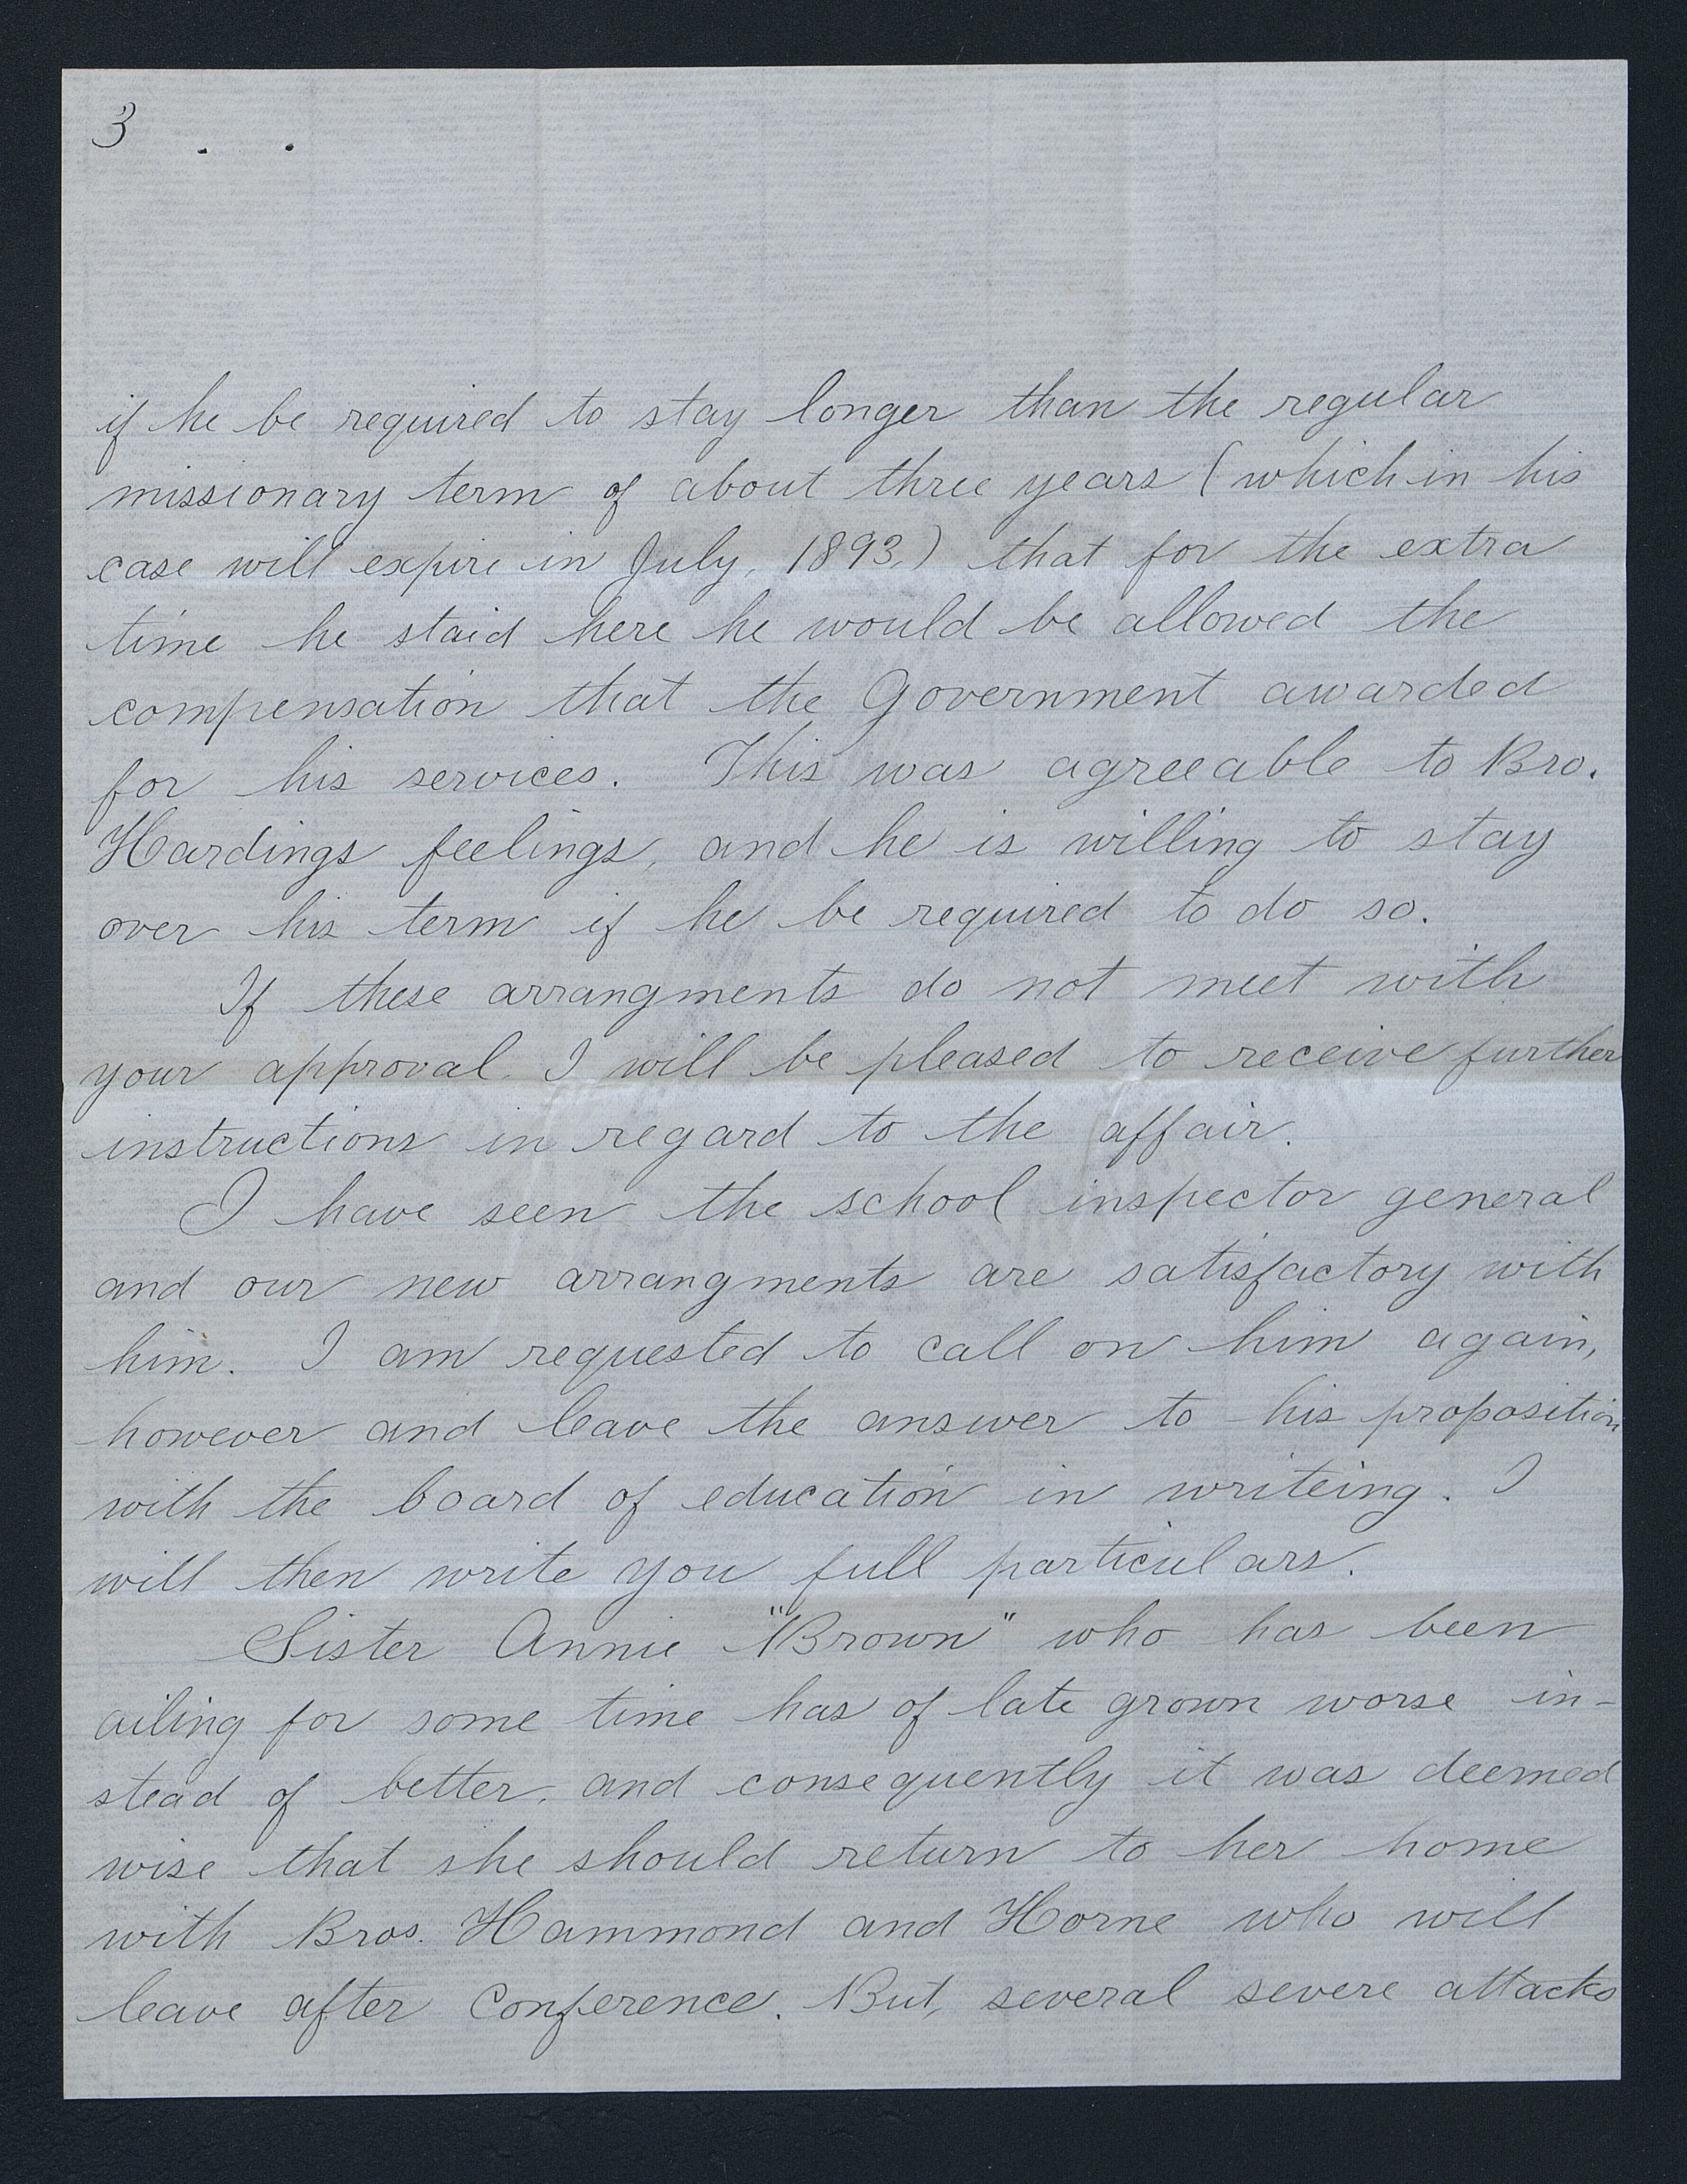 3 . .
if he be required to stay longer than the regular
missionary term of about three years (which in his
case will expire in July, 1893.) that for the extra
time he staid here he would be allowed the
compensation that the Government awarded
for his services. This was agreeable to Bro.
Hardings feelings, and he is willing to stay
over his term if he be required to do so.
If these arrangments do not meet with
your approval. I will be pleased to receive further
instructions in regard to the affair.
I have seen the school inspector general
and our new arrangments are satisfactory with
him. I am requested to call on him again,
however and leave the answer to his proposition
with the board of education in writeing. I
will then write you full particulars.
Sister Annie "Brown" who has been
ailing for some time has of late grown worse in-
stead of better, and consequently it was deemed
wise that she should return to her home
with Bros. Hammond and Horne who will
leave after Conference. But, several severe attacks